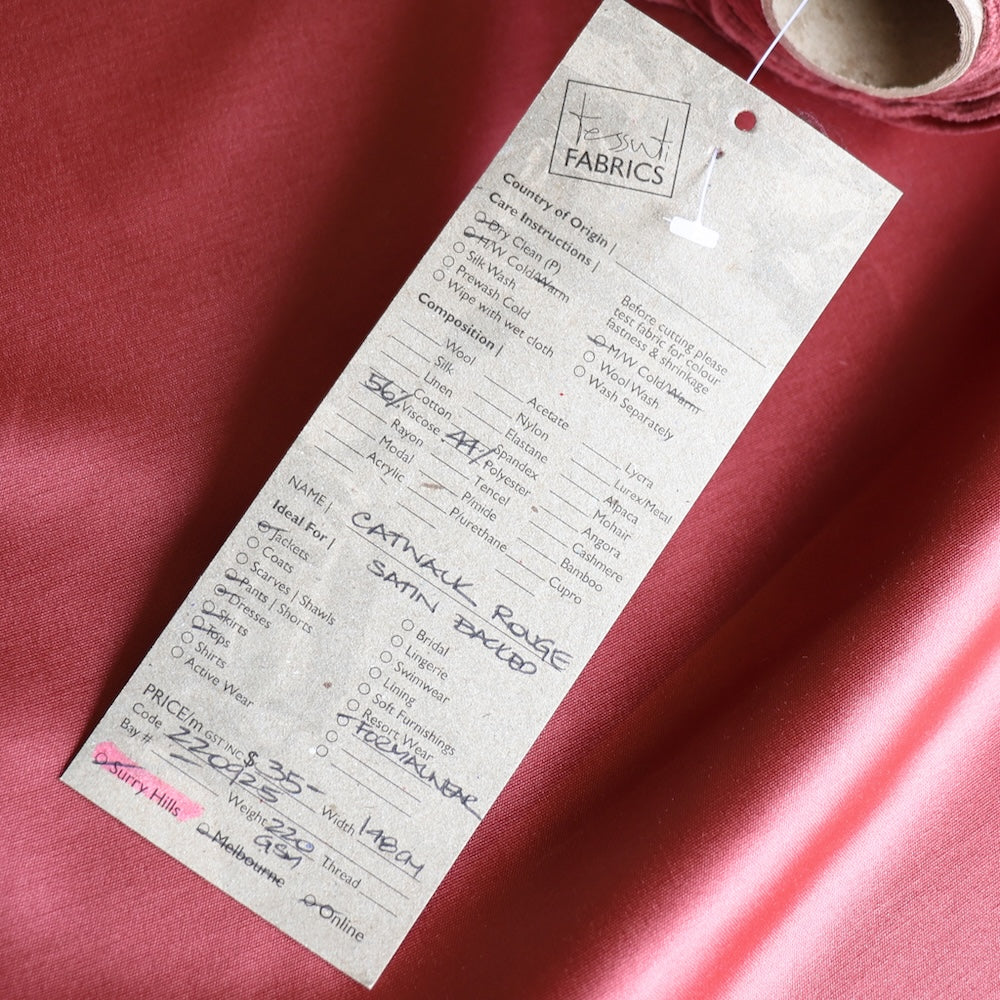 tessuti
FABRICS
Country of Origin |
Care Instructions |
Dry Clean (P)
H/W Cold/Warm
Silk Wash
Prewash Cold
Wipe with wet cloth
Before cutting please
test fabric for colour
fastness & shrinkage
M/W Cold/Warm
Wool Wash
Wash Separately
Composition |
Wool
Silk
Linen
Cotton
56% Viscose
Rayon
Modal
Acrylic
Acetate
Nylon
Elastane
Spandex
44% Polyester
Tencel
P/mide
P/urethane
Lycra
Lurex/Metal
Alpaca
Mohair
Angora
Cashmere
Bamboo
Cupro
NAME | CATWALK ROUGE
SATIN BACKED
Ideal For |
Jackets
Coats
Scarves | Shawls
Pants | Shorts
Dresses
Skirts
Tops
Shirts
Active Wear
Bridal
Lingerie
Swimwear
Lining
Soft Furnishings
Resort Wear
FORMALWEAR
PRICE/m GST INC $ 35- Width 148CM
Code 220925
Bay # Weight 220 GSM Thread
Surry Hills Melbourne Online